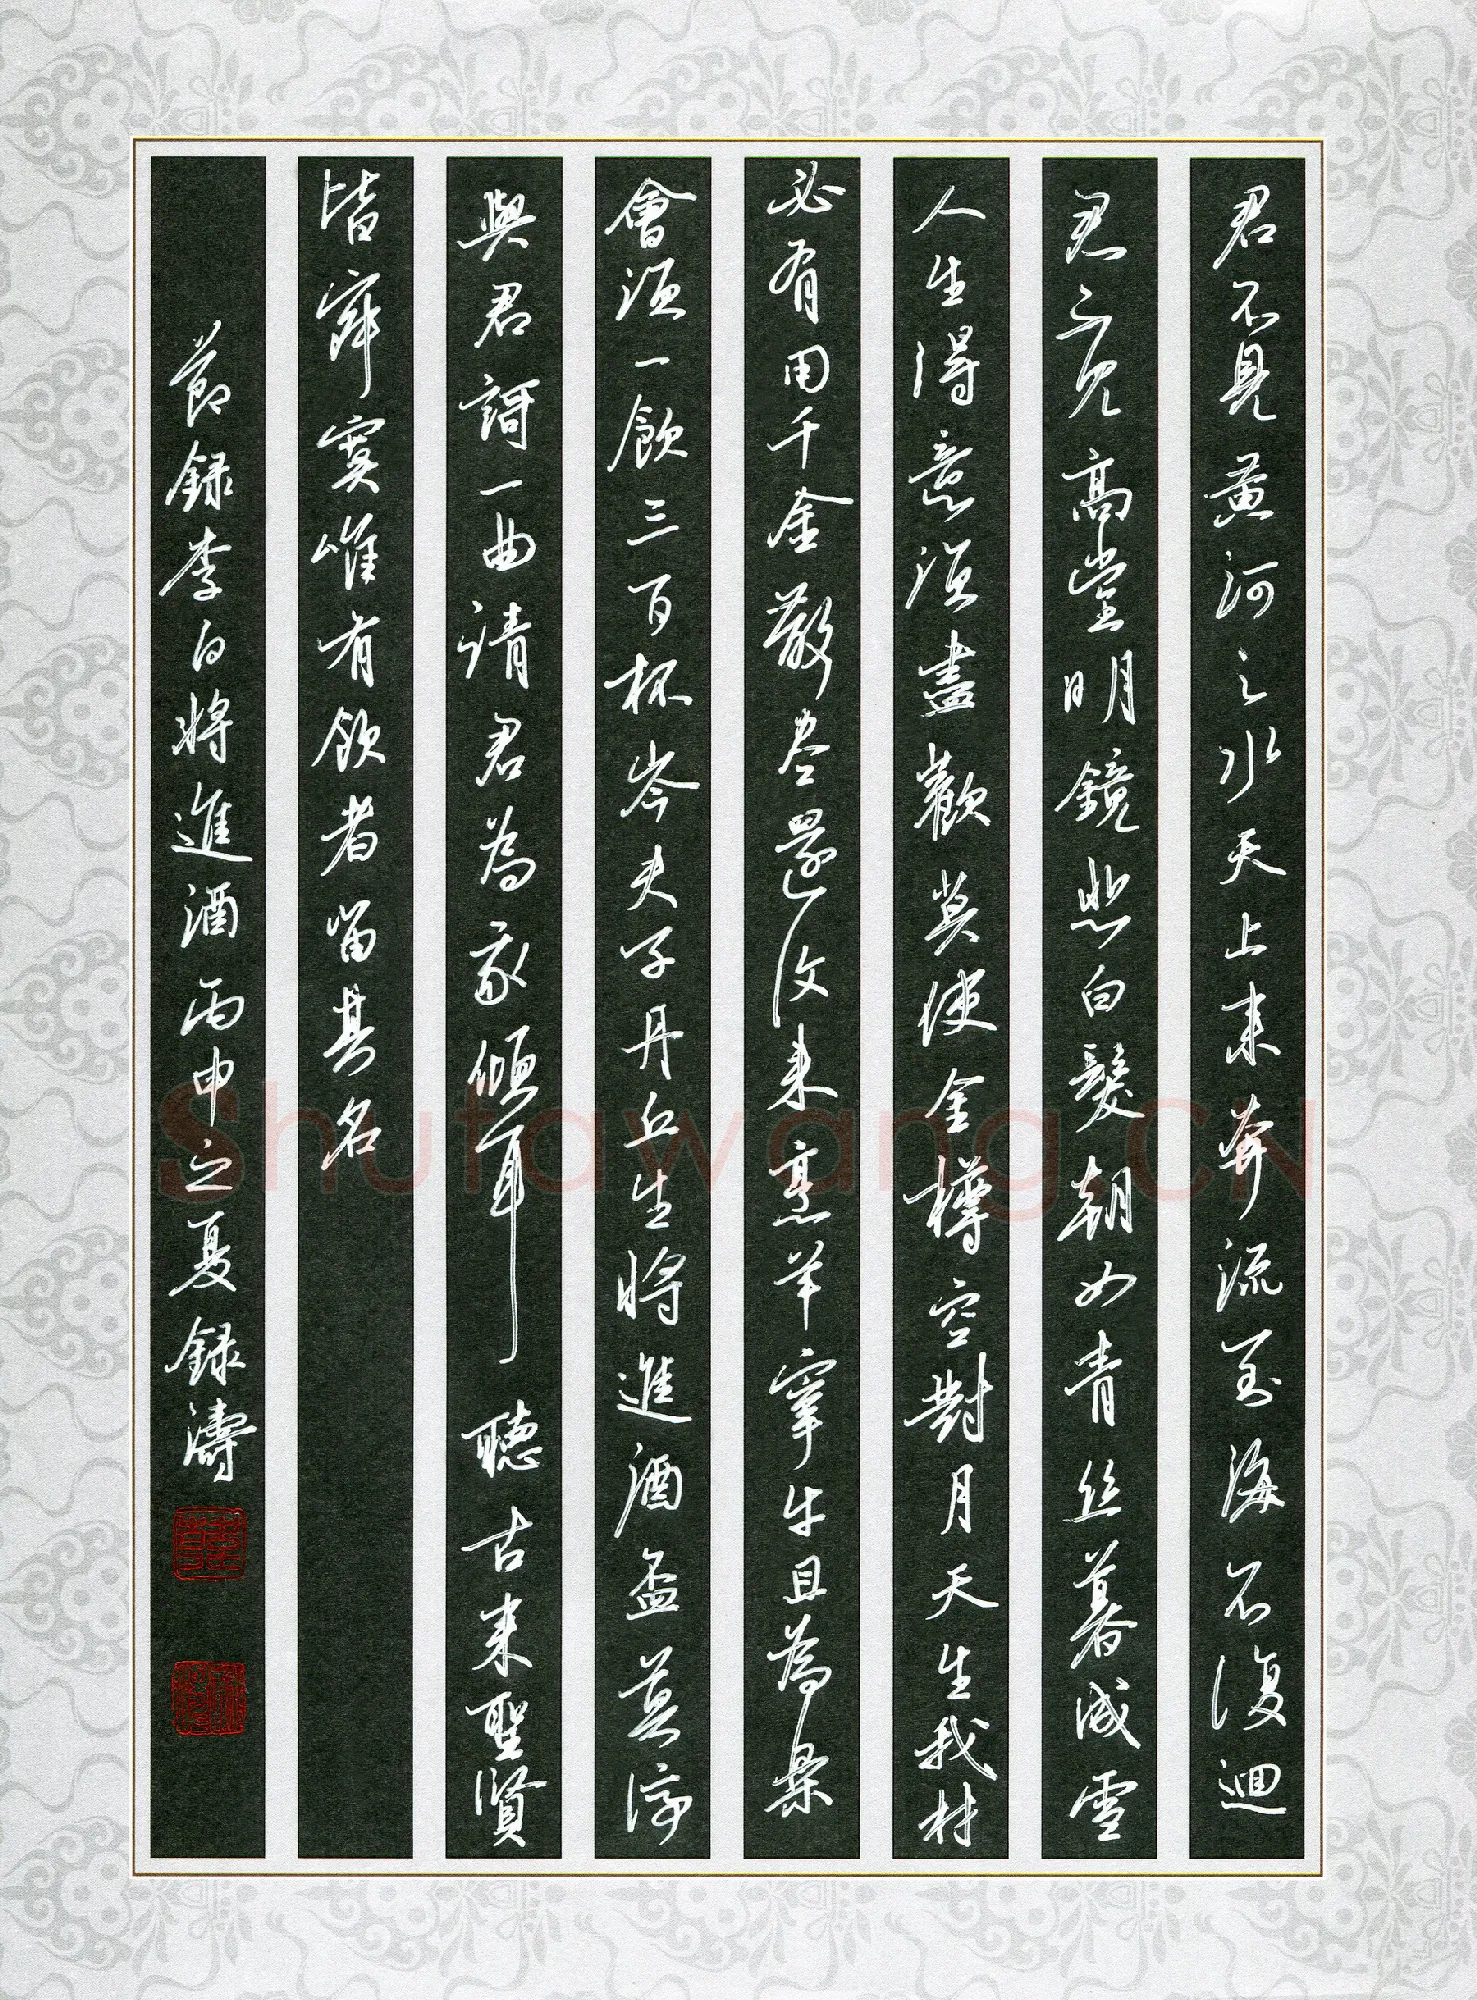 君不見黄河之水天上来奔流至海不復迴
君不见高堂明鏡悲白髮朝如青丝暮成雪
人生得意須盡歡莫使金樽空對月天生我材
必有用千金散尽還復来烹羊宰牛且為樂
會須一飲三百杯岑夫子丹丘生將進酒盃莫停
與君謌一曲請君為我傾耳聽古来聖賢
皆寂寞唯有飲者留其名
節録李白將進酒丙申之夏録濤
Shufawang.CN